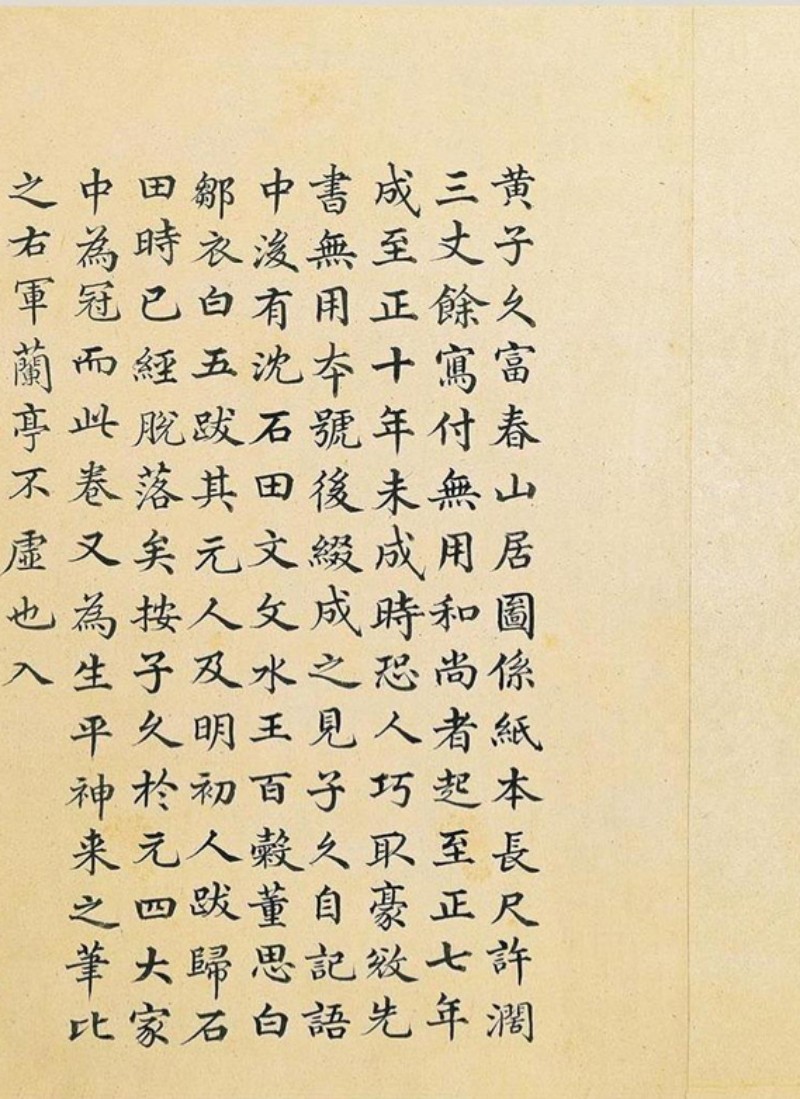 黄子久富春山居圖係紙本長尺許濶
三丈餘寫付無用和尚者起至正七年
成至正十年未成時恐人巧取豪敓先
書無用本號後綴成之見子久自記語
中後有沈石田文文水王百穀董思白
鄒衣白五跋其元人及明初人跋歸石
田時已經脫落矣按子久於元四大家
中為冠而此卷又為生平神来之筆比
之右軍蘭亭不虛也入